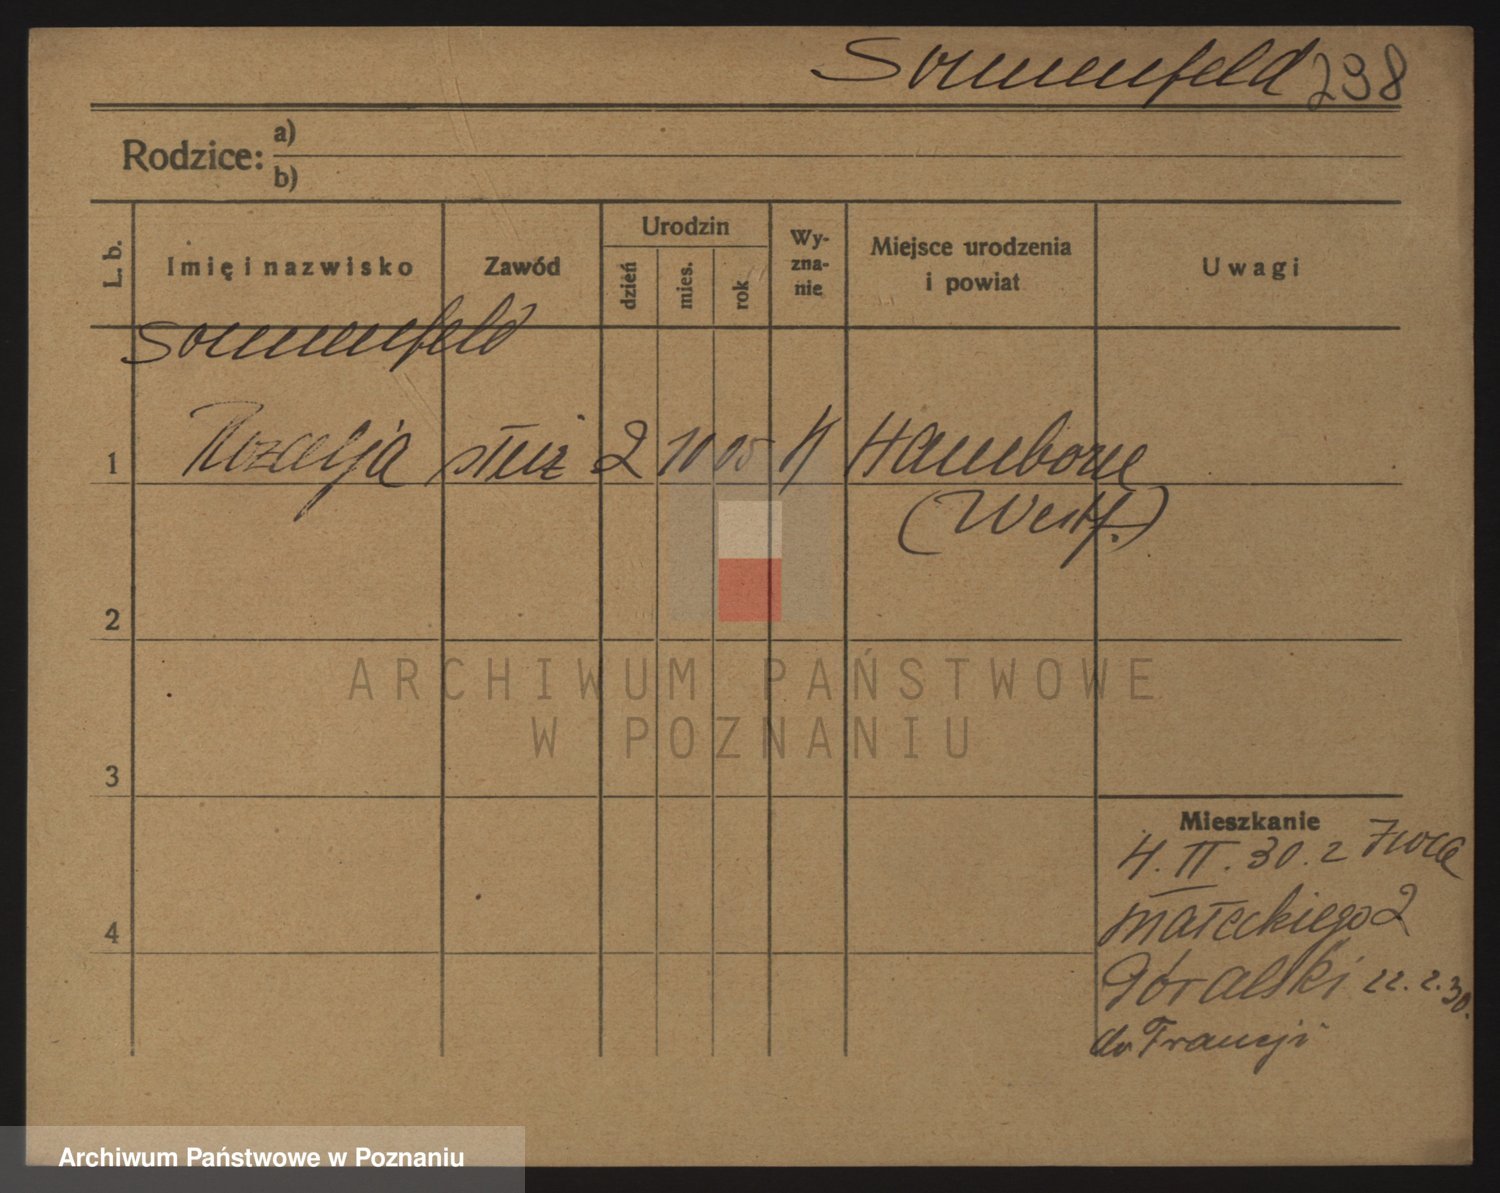 Sonnenfeld 238
Rodzice: a)
b)
L. b.
Imię i nazwisko
Zawód
Urodzin
dzień
mies.
rok
Wy-
zna-
nie
Miejsce urodzenia
i powiat
Uwagi
Sonnenfeld
1 Rozalja służ 2 10 05 K Hamborne
(Westf.)
2
ARCHIWUM PAŃSTWOWE
W POZNANIU
3
Mieszkanie
4. II. 30. z
Małeckiego 2
4
Góralski 22. 2. 30.
do Francji
Archiwum Państwowe w Poznaniu